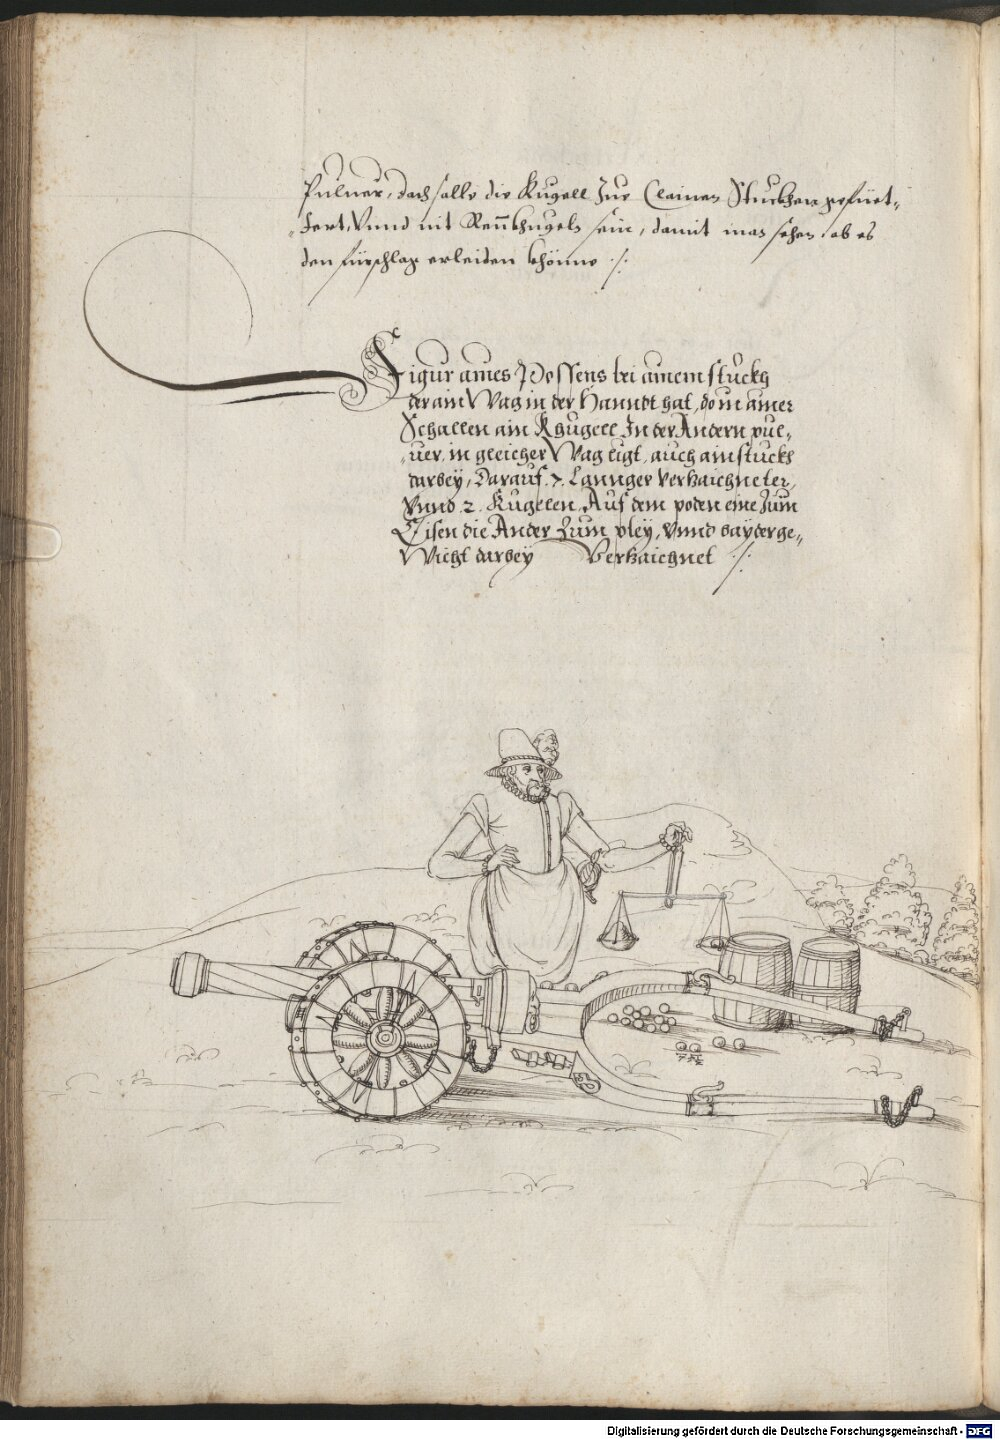 Puluer, doch solle die Kugell Zur Clainen Stuckhen gefüet„
„tert, Vnnd mit Rennkhugeln sein, damit man sehen ob es
den fürschlag erleiden khönne ./.
Figur aines Possens bei ainem stuckh
der ain Wag in der Hanndt hat, do in ainer
Schallen ain Khugell In der Andern pul„
„uer, in gleicher Wag ligt, auch ain stuckh
darbey, Darauf .7. Lannger verkaichneter,
Vnnd .2. Kugelen Auf dem poden eine Zum
Eisen die Ander Zum pley, Vnnd bayder ge„
Wicht darbey Verkaichnet ./.
Digitalisierung gefördert durch die Deutsche Forschungsgemeinschaft - DFG